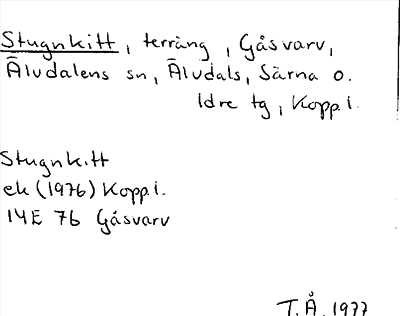 Stugnkitt, terräng, Gåsvarv,
Älvdalens sn, Älvdals, Särna o.
Idre tg, Kopp l.
Stugnkitt
ek (1976) Kopp l.
14E 7b Gåsvarv
T.Å. 1977